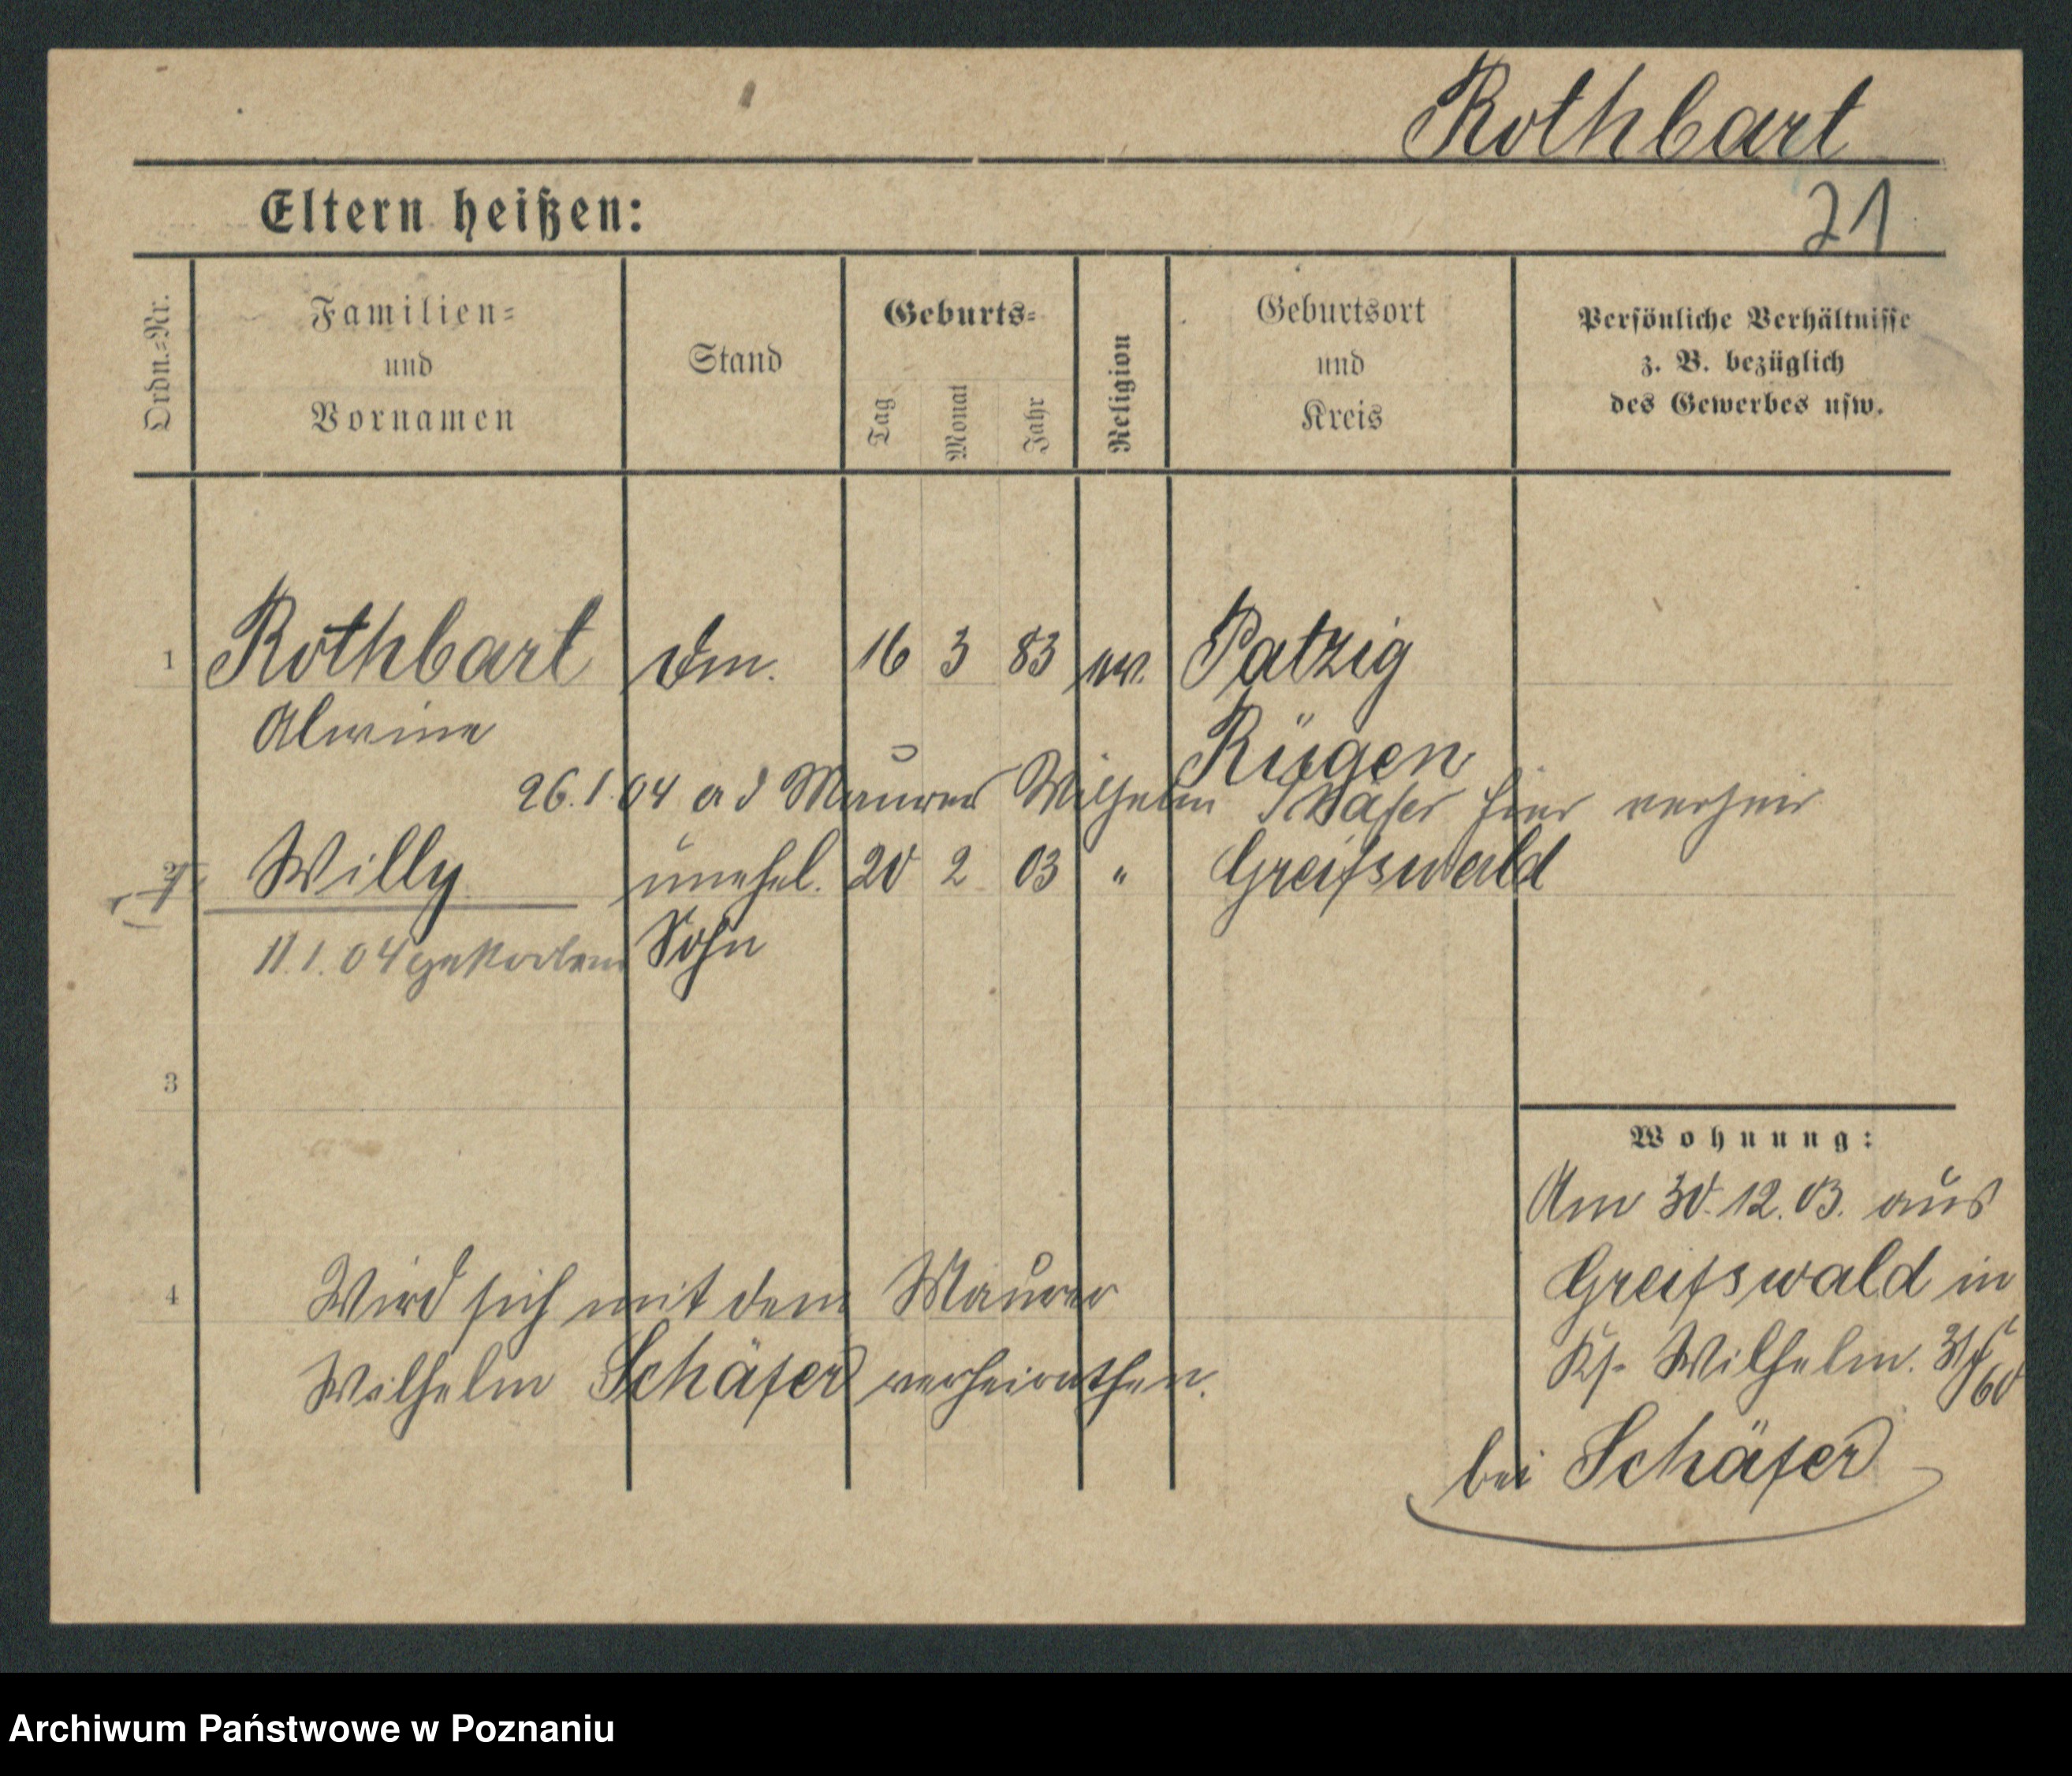 Rothbart
21
Eltern heißen:
Ordn.=Nr.
Familien=
und
Vornamen
Stand
Geburts=
Tag
Monat
Jahr
Religion
Geburtsort
und
Kreis
Persönliche Verhältnisse
z. B. bezüglich
des Gewerbes usw.
1 Rothbart 16 3 83 ev. Patzig
Alwine Rügen
26.1.04 a d Maurer Wilhelm Schäfer hier verheir
2 Willy unehel. 20 2 03 " Greifswald
11.1.04 gestorben Sohn
3
Wohnung:
Am 30.12.03. aus
Greifswald in
Wilhelm.
bei Schäfer
4 Wird sich mit dem Maurer
Wilhelm Schäfer verheirathen.
Archiwum Państwowe w Poznaniu